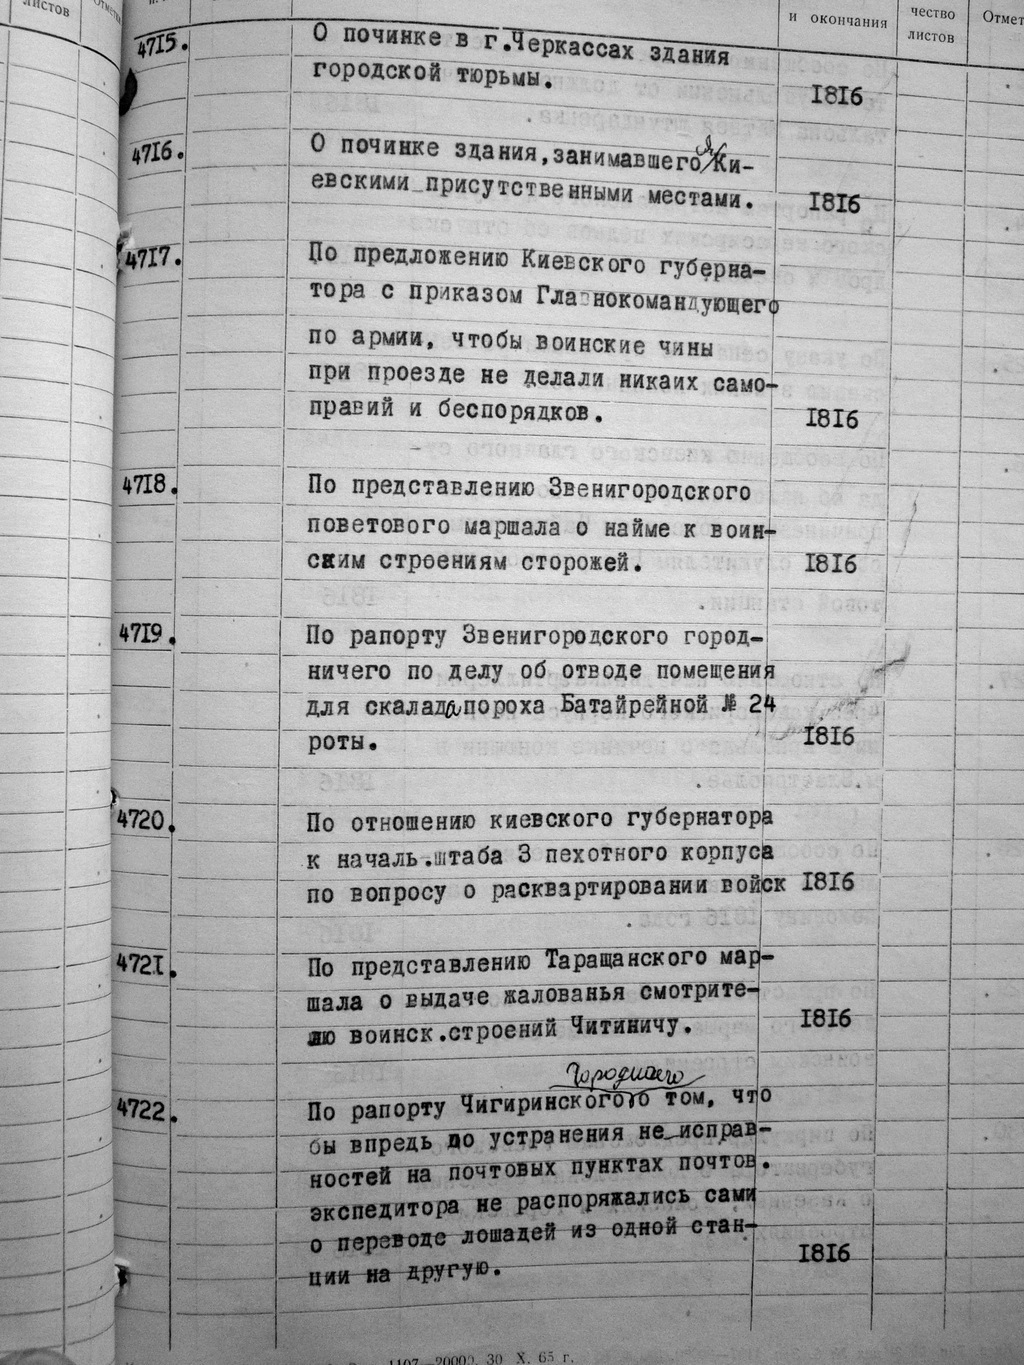 листов
и окончания
чество
листов
Отмет
4715.
О починке в г.Черкассах здания
городской тюрьмы.
1816
4716.
О починке здания,занимавшегося Ки-
евскими присутственными местами.
1816
4717.
По предложению Киевского губерна-
тора с приказом Главнокомандующего
по армии, чтобы воинские чины
при проезде не делали никаих само-
правий и беспорядков.
1816
4718.
По представлению Звенигородского
поветового маршала о найме к воин-
ским строениям сторожей.
1816
4719.
По рапорту Звенигородского город-
ничего по делу об отводе помещения
для скалада пороха Батайрейной № 24
роты.
1816
4720.
По отношению киевского губернатора
к началь.штаба 3 пехотного корпуса
по вопросу о расквартировании войск 1816
.
4721.
По представлению Таращанского мар-
шала о выдаче жалованья смотрите-
лю воинск.строений Читиничу.
1816
Городничего
4722.
По рапорту Чигиринского о том, что
бы впредь до устранения не исправ-
ностей на почтовых пунктах почтов.
экспедитора не распоряжались сами
о переводе лошадей из одной стан-
ции на другую.
1816
1107—20000. 30 X. 65 г.